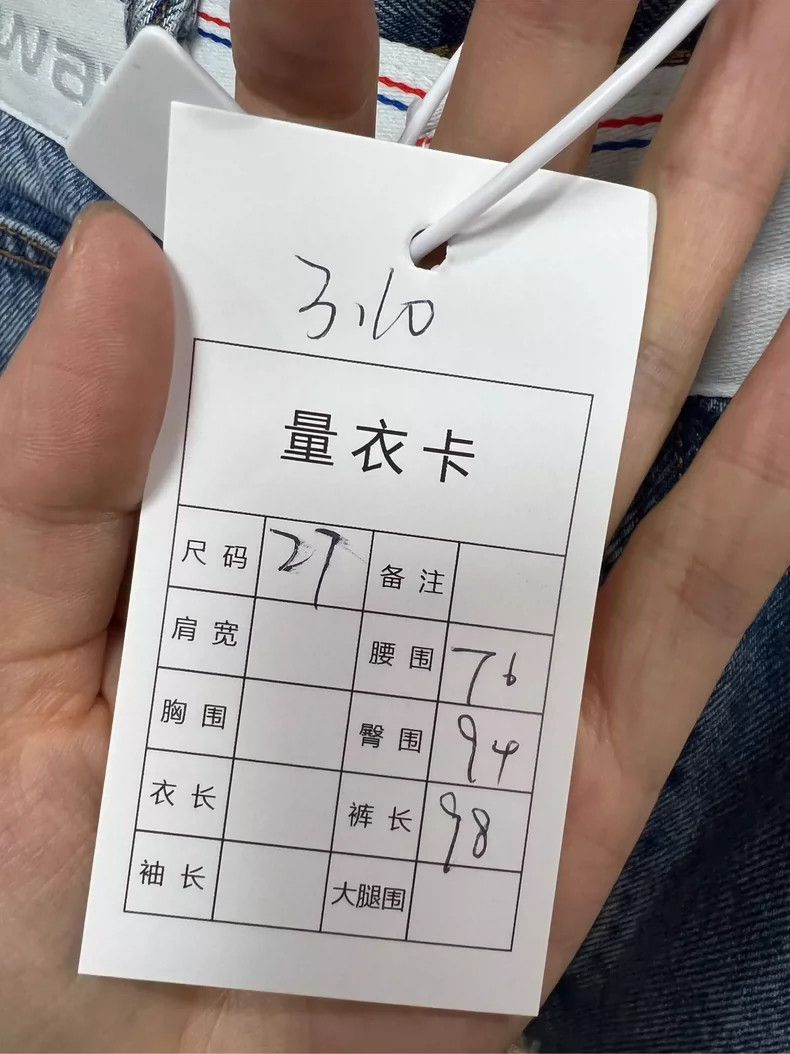 3.10
量衣卡
尺码 27 备注
肩宽 腰围 76
胸围 臀围 94
衣长 裤长 98
袖长 大腿围